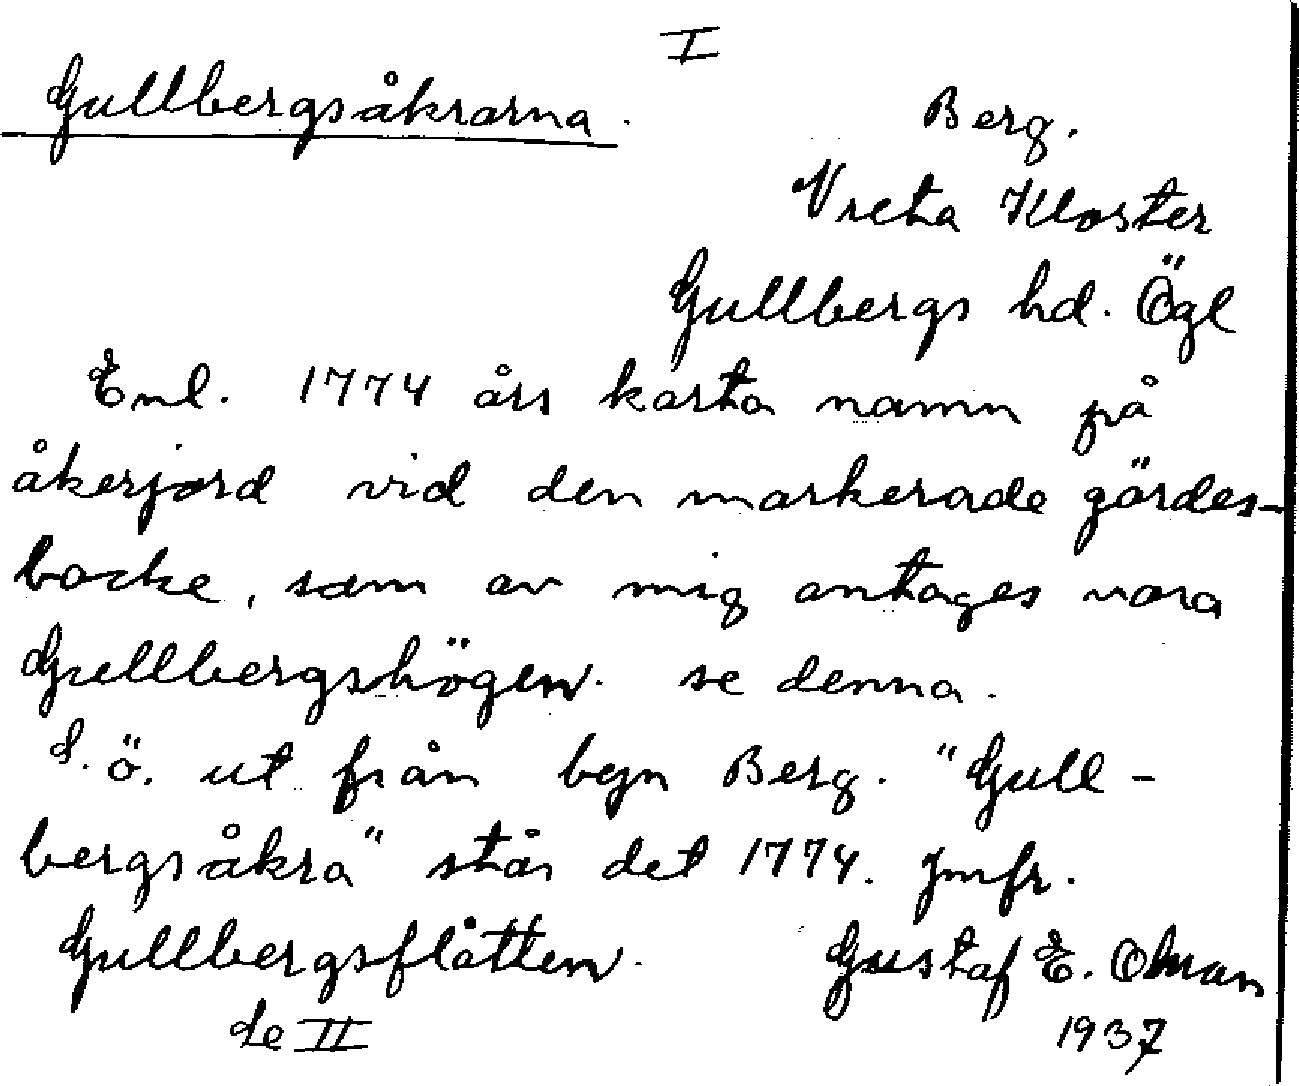 I
Gullbergsåkrarna.
Berg.
Vreta Kloster
Gullbergs hd. Ögl
Enl. 1774 års karta namn på
åkerjord vid den markerade gärdes-
backe, som av mig antages vara
Gullbergshögen. se denna.
S. ö. ut från byn Berg. "Gull-
bergsåkra" står det 1774. Jmfr.
Gullbergsflätten. Gustaf E. Ohman
Se II 1937